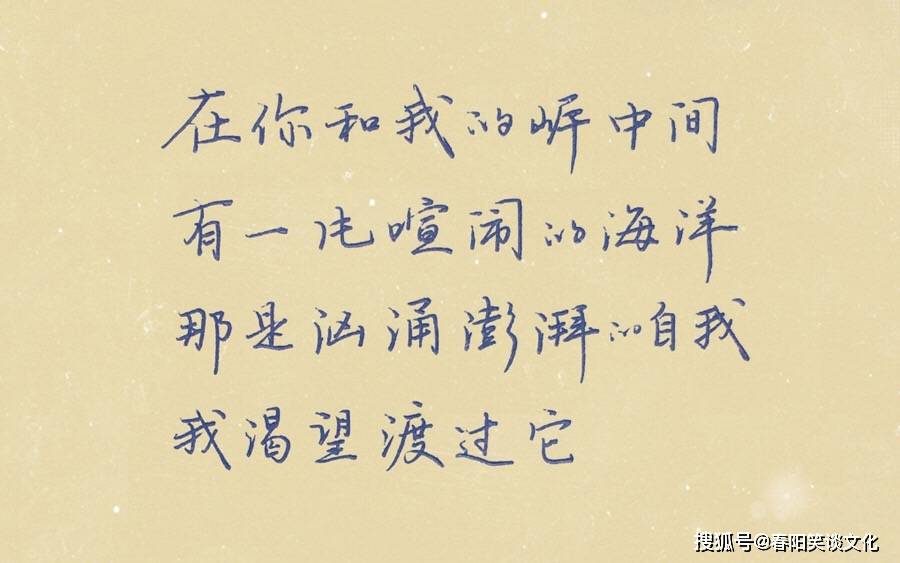 在你和我的岸中间
有一片喧闹的海洋
那是汹涌澎湃的自我
我渴望渡过它
搜狐号@春阳笑谈文化